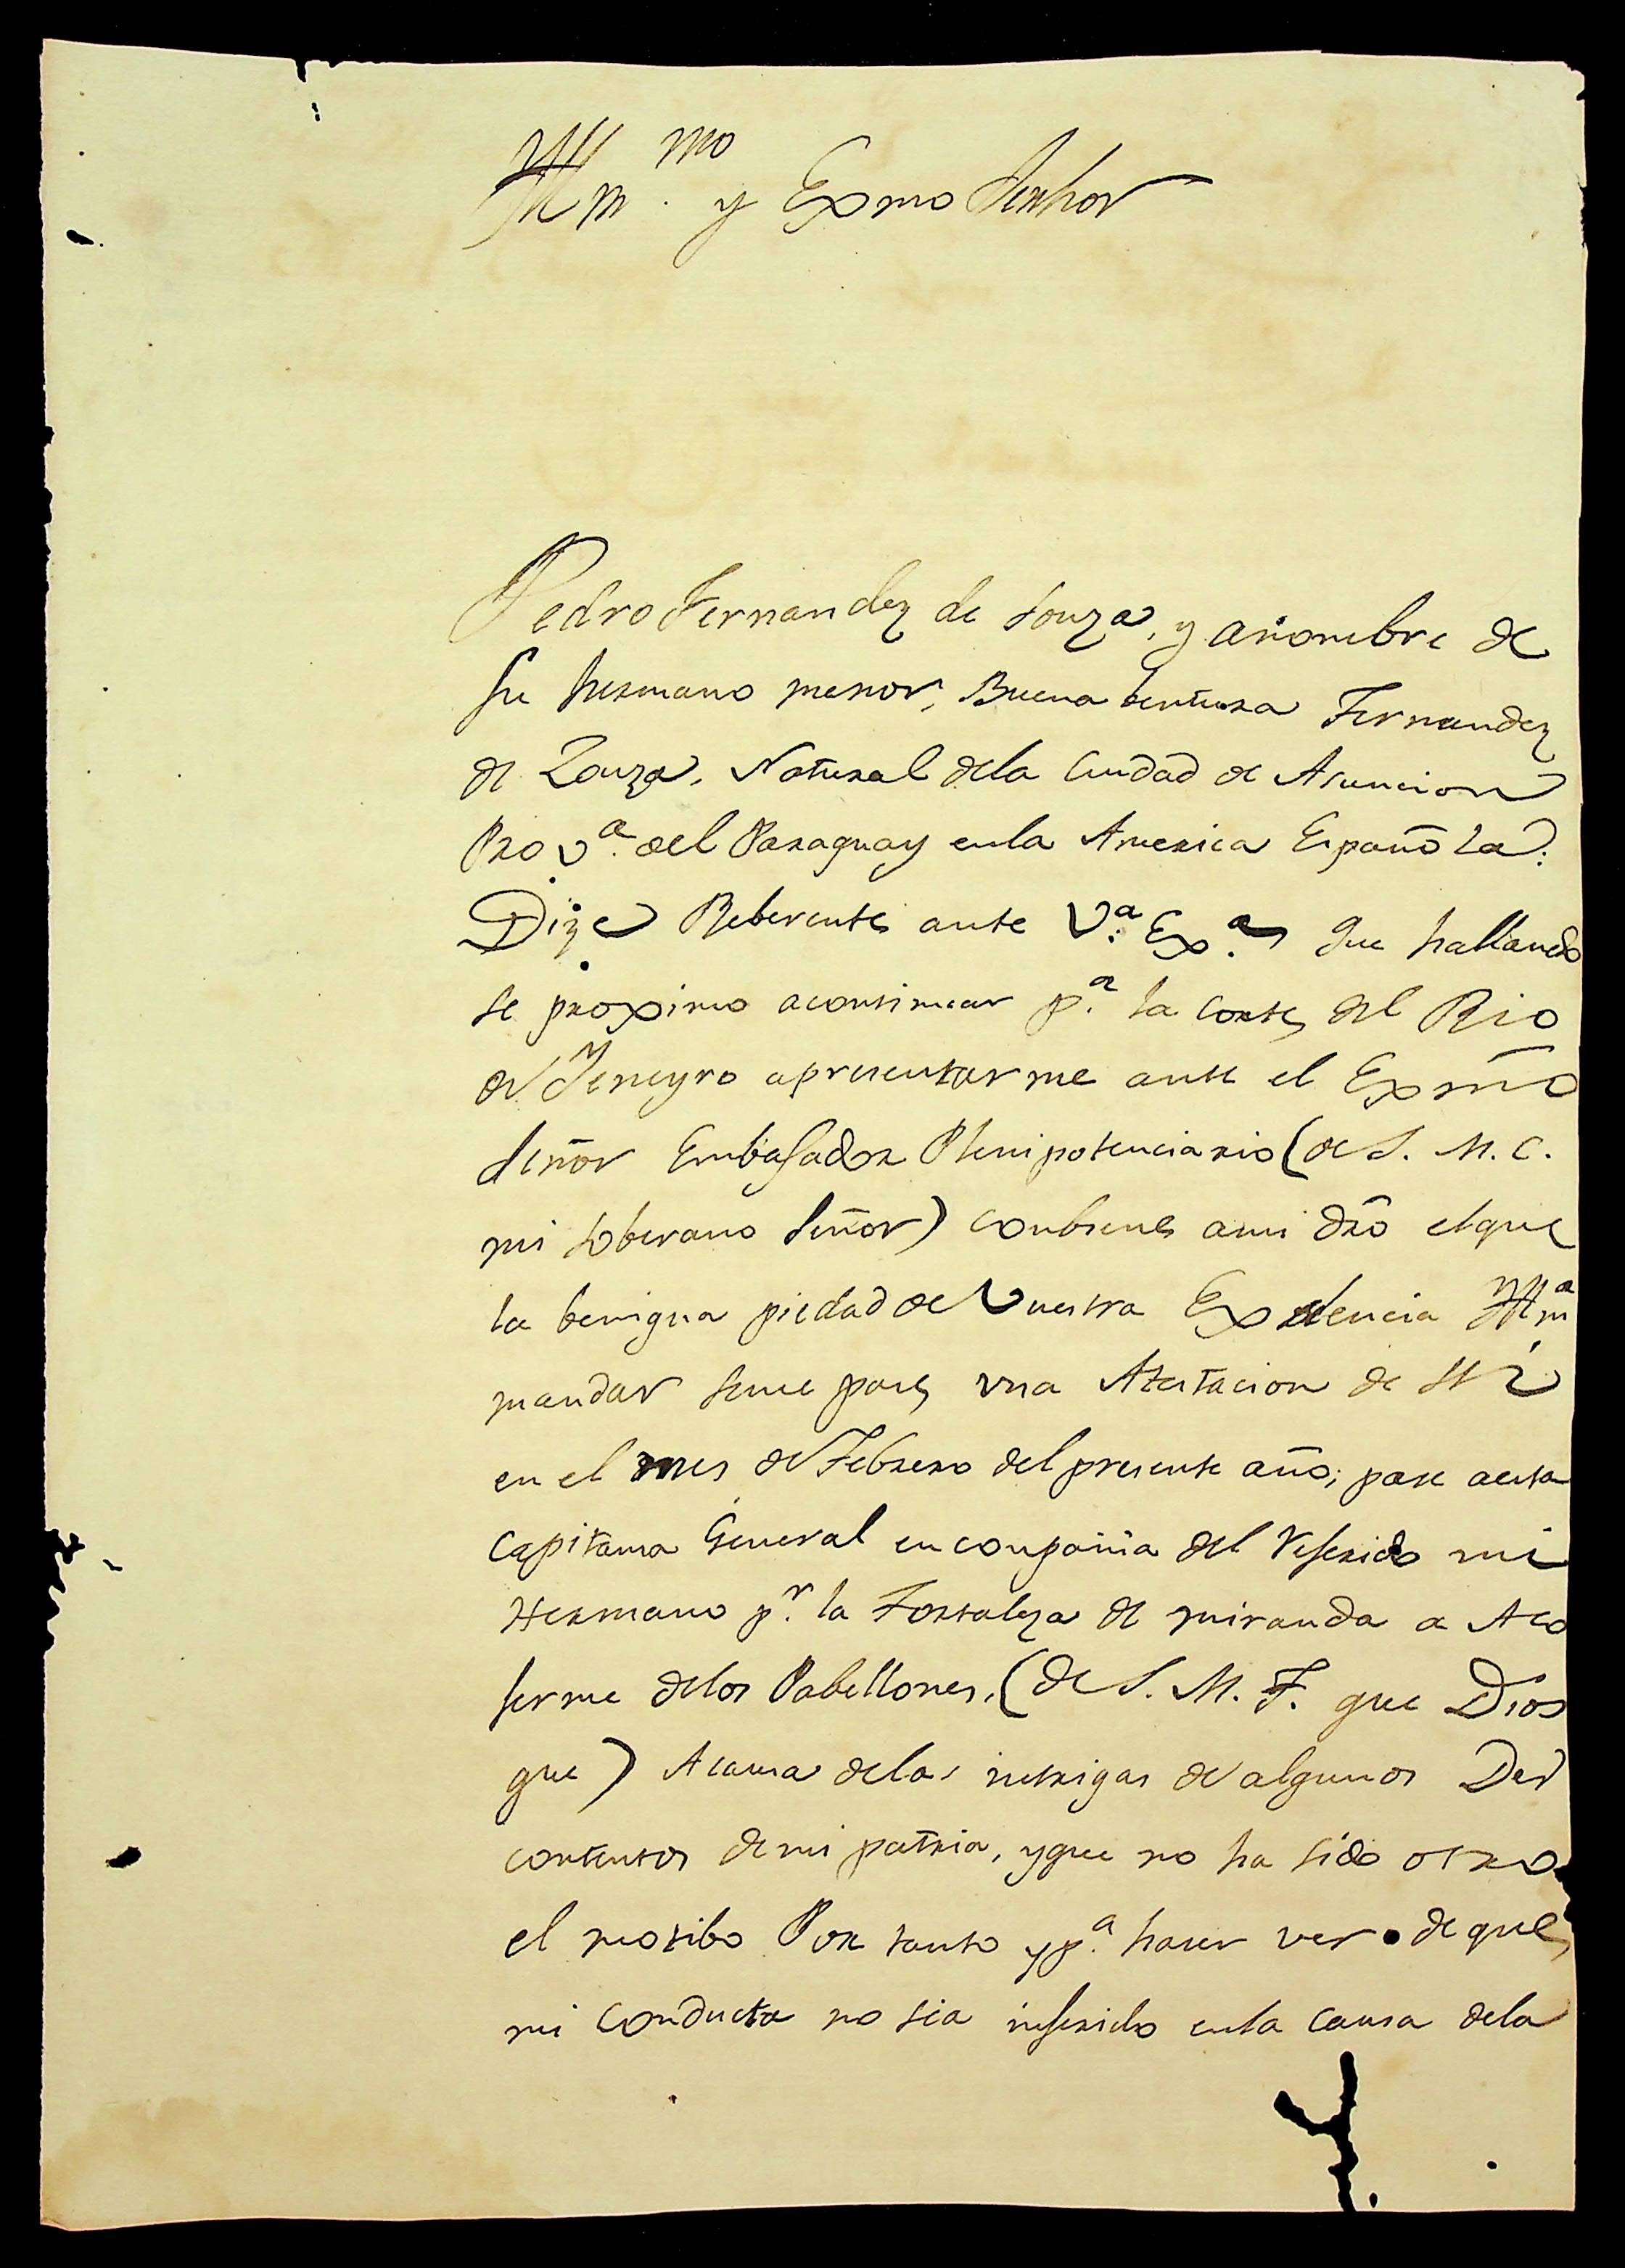 Yllmº. y Exmo Senhor
Pedro Fernandez de Souza, y anombre de
su hermano menor, Buena bentura Fernandez
de Zouza, Natural dela Ciudad de Asuncion
Prov.ª del Paraguay enla America Española:
Dize Reberente ante V.ª Ex.ª que hallando
se proximo acontinuar p.ª la Corte del Rio
de Jeneyro apresentarme ante el Exmõ
Señor Embasador Plenipotenciario (de S. M. C.
mi Soberano Señor) conbiene ami dro elque
la benigna piedad de Vuestra Exelencia Yllmª
mandar seme pase vna Atestacion de
en el mes de Febrero del presente año; pase aesta
Capitania General en conpañia del referido mi
Hermano p.r la Fortaleza de miranda a Aco
jerme delos Pabellones, (de S. M. F. que Dios
gue) Acausa delas intrigas de algunos Des
contentos demi patria, yque no ha sido otro
el motibo Por tanto yp.ª haser ver deque
mi conducta no sea inferido enla causa dela